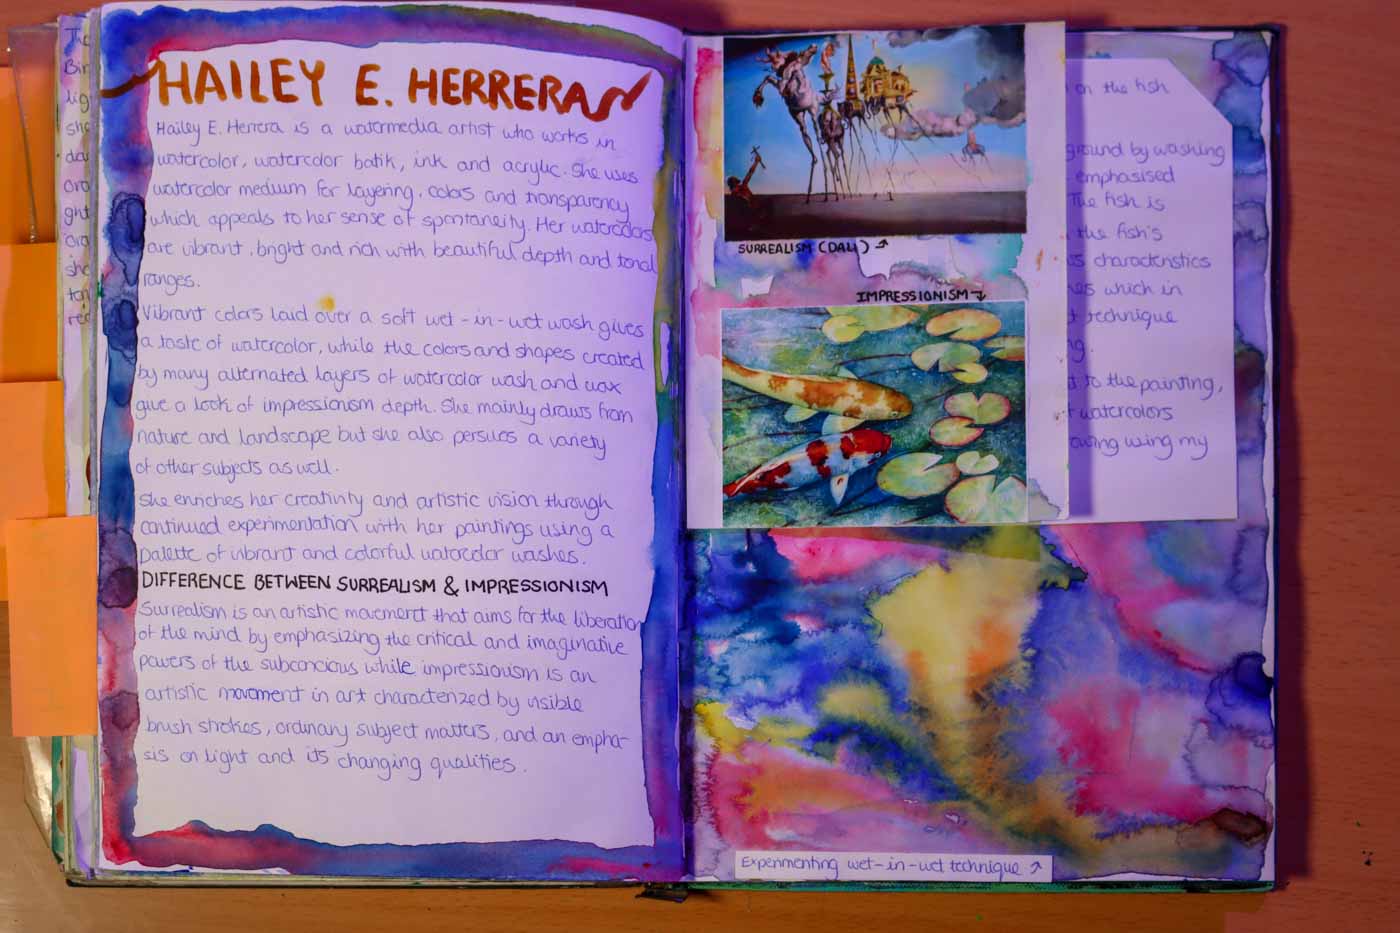 HAILEY E. HERRERA
Hailey E. Herrera is a watermedia artist who works in
watercolor, watercolor batik, ink and acrylic. She uses
watercolor medium for layering, colors and transparency
which appeals to her sense of spontaneity. Her watercolors
are vibrant, bright and rich with beautiful depth and tonal
ranges.
Vibrant colors laid over a soft wet-in-wet wash gives
a taste of watercolor, while the colors and shapes created
by many alternated layers of watercolor wash and wax
give a look of impressionism depth. She mainly draws from
nature and landscape but she also persues a variety
of other subjects as well.
She enriches her creativity and artistic vision through
continued experimentation with her paintings using a
palette of vibrant and colorful watercolor washes.
DIFFERENCE BETWEEN SURREALISM & IMPRESSIONISM
Surrealism is an artistic movement that aims for the liberation
of the mind by emphasizing the critical and imaginative
powers of the subconcious while impressionism is an
artistic movement in art characterized by visible
brush strokes, ordinary subject matters, and an empha-
sis on light and its changing qualities.
SURREALISM (DALI)
IMPRESSIONISM
on the fish
ground by washing
emphasised
The fish is
the fish's
characteristics
which in
technique
to the painting,
watercolors
using my
Experimenting wet-in-wet technique